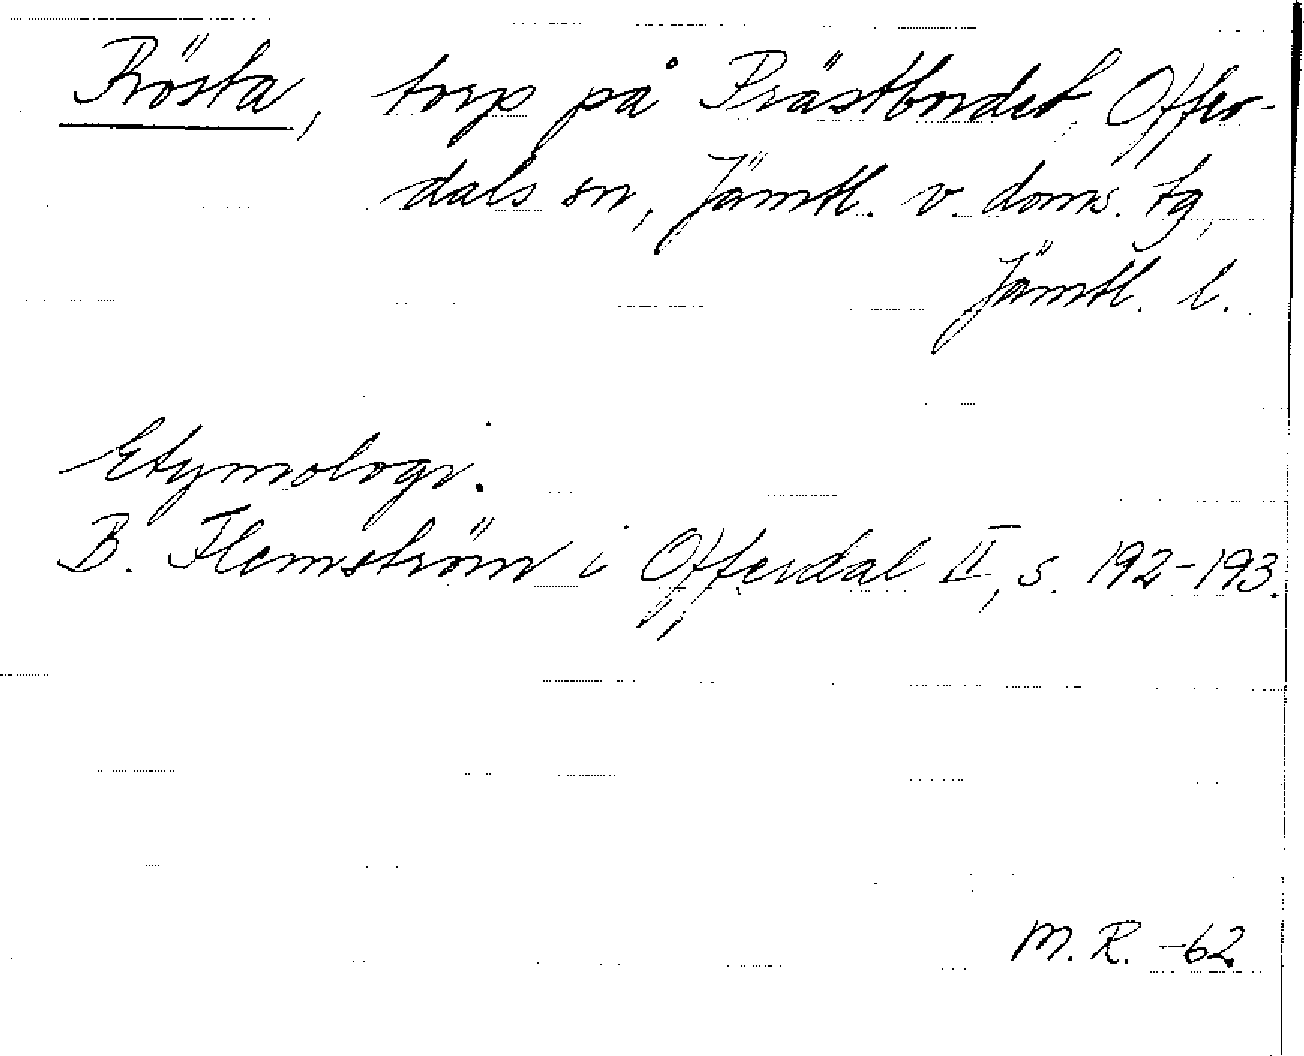 Rösta, torp på Prästbordet, Offer-
dals sn, Jämtl. v. doms. tg,
Jämtl. l.
Etymologi.
B. Flemström i Offerdal II, s. 192-193.
M.R. -62